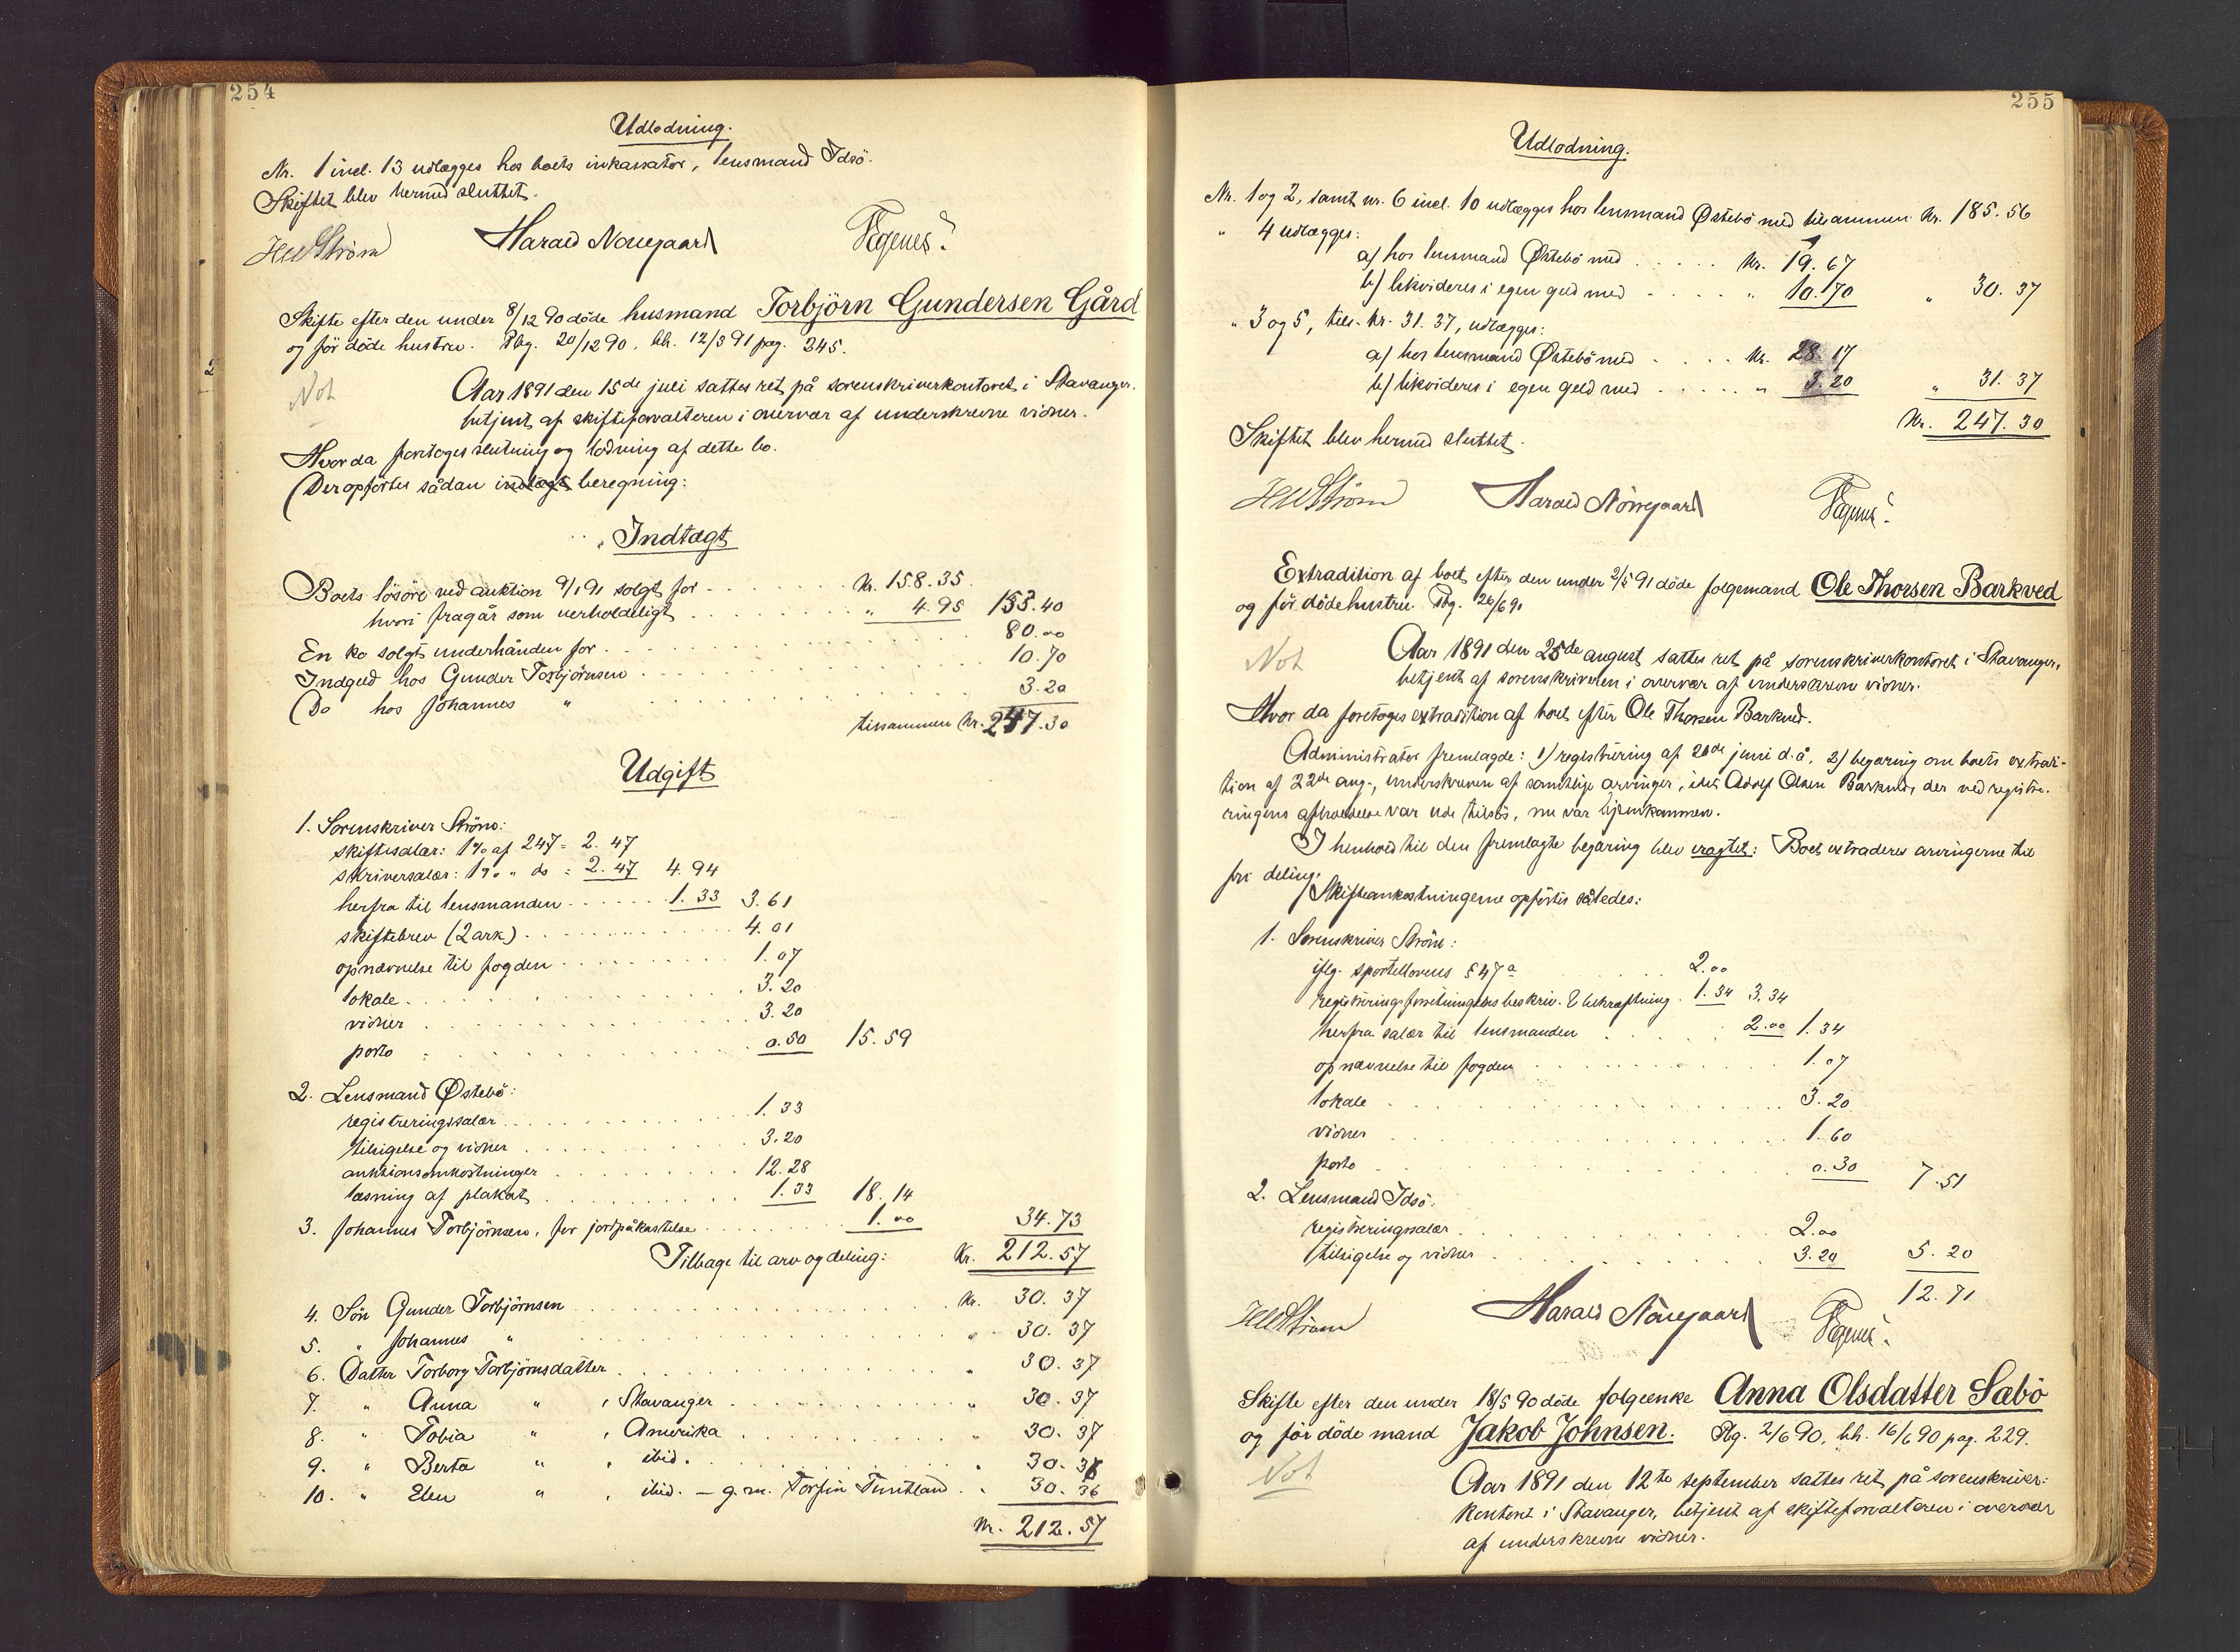 254
Udlodning.
Nr. 1 incl. 13 udlægges hos boets inkassator, lensmand Idsö.
Skiftet blev hermed sluttet.
HWStröm Harald Nörregaard
Skifte efter den under 8/12 90 döde husmand Torbjörn Gundersen Gård
og før döde hustru. Rbg. 20/12 90. bh. 12/3 91 pag. 245.
Not
Aar 1891 den 15de juli sattes ret på sorenskriverkontoret i Stavanger,
betjent af skifteforvalteren i overvær af underskrevne vidner.
Hvor da foretoges slutning og lodning af dette bo.
Der opförtes sådan beregning:
Indtægt
Boets lösöre ved auktion 9/1 91 solgt for Kr. 158.35
hvori fragår som uerholdeligt " 4.95 153.40
En ko solgt underhånden for 80.00
Indgjeld hos Gunder Torbjörnsen 10.70
Do hos Johannes " 3.20
tilsammen Kr. 247.30
Udgift
1. Sorenskriver Ström:
skiftesalær: 1% af 247 = 2.47
skriversalær: 1% " do = 2.47 4.94
herfra til lensmanden 1.33 3.61
skiftebrev (2 ark) 4.01
opnævnelse til fogden 1.07
lokale 3.20
vidner 3.20
porto 0.50 15.59
2. Lensmand Østebö:
registreringssalær 1.33
tilsigelse og vidner 3.20
auktionsomkostninger 12.28
læsning af plakat 1.33 18.14
3. Johannes Torbjörnsen, for jordpåkastelse 1.00 34.73
Tilbage til arv og deling: Kr. 212.57
4. Sön Gunder Torbjörnsen Kr. 30.37
5. " Johannes " " 30.37
6. Datter Torborg Torbjörnsdatter " 30.37
7. " Anna " , Stavanger " 30.37
8. " Tobia " , Amerika " 30.37
9. " Berta " , ibid. " 30.36
10. " Elen " , ibid. – g.m. Torfin Tuntland " 30.36
Kr. 212.57
255
Udlodning.
Nr. 1 og 2, samt nr. 6 incl. 10 udlægges hos lensmand Østebö med tilsammen Kr. 185.56
" 4 udlægges:
a) hos lensmand Østebö med Kr. 19.67
b) likvideres i egen gjeld med " 10.70 " 30.37
" 3 og 5, tils. Kr. 31.37, udlægges:
a) hos lensmand Østebö med Kr. 28.17
b) likvideres i egen gjeld med " 3.20 " 31.37
Kr. 247.30
Skiftet blev hermed sluttet.
HWStröm Harald Nörregaard
Extradition af boet efter den under 2/5 91 döde folgemand Ole Thorsen Barkved
og för döde hustru. Rbg. 26/6 91
Not
Aar 1891 den 25de august sattes ret på sorenskriverkontoret i Stavanger,
betjent af sorenskriveren i overvær af underskrevne vidner.
Hvor da foretoges extradition af boet efter Ole Thorsen Barkved.
Administrator fremlagde: 1) registrering af 26de juni d.å, 2) begæring om boets extradi-
tion af 22de aug., underskreven af samtlige arvinger, idet Adolf Olsen Barkved, der ved registre-
ringens afholdelse var ude tilsös, nu var hjemkommen.
I henhold til den fremlagte begæring blev eragtet: Boet extraderes arvingerne til
fri deling.
Skifteomkostningerne opförtes således:
1. Sorenskriver Ström:
iflg. sportellovens § 47a 2.00
registreringsforretningens beskriv. & bekræftning 1.34 3.34
herfra salær til lensmanden 2.00 1.34
opnævnelse til fogden 1.07
lokale 3.20
vidner 1.60
porto 0.30 7.51
2. Lensmand Idsö:
registreringssalær 2.00
tilsigelse og vidner 3.20 5.20
12.71
HWStröm Harald Nörregaard
Skifte efter den under 18/5 90 döde folgeenke Anna Olsdatter Sæbö
og för döde mand Jakob Johnsen. Rg. 2/6 90, bh. 16/6 90 pag. 229.
Not
Aar 1891 den 12te september sattes ret på sorenskriver-
kontoret i Stavanger, betjent af skifteforvalteren i overvær
af underskrevne vidner.